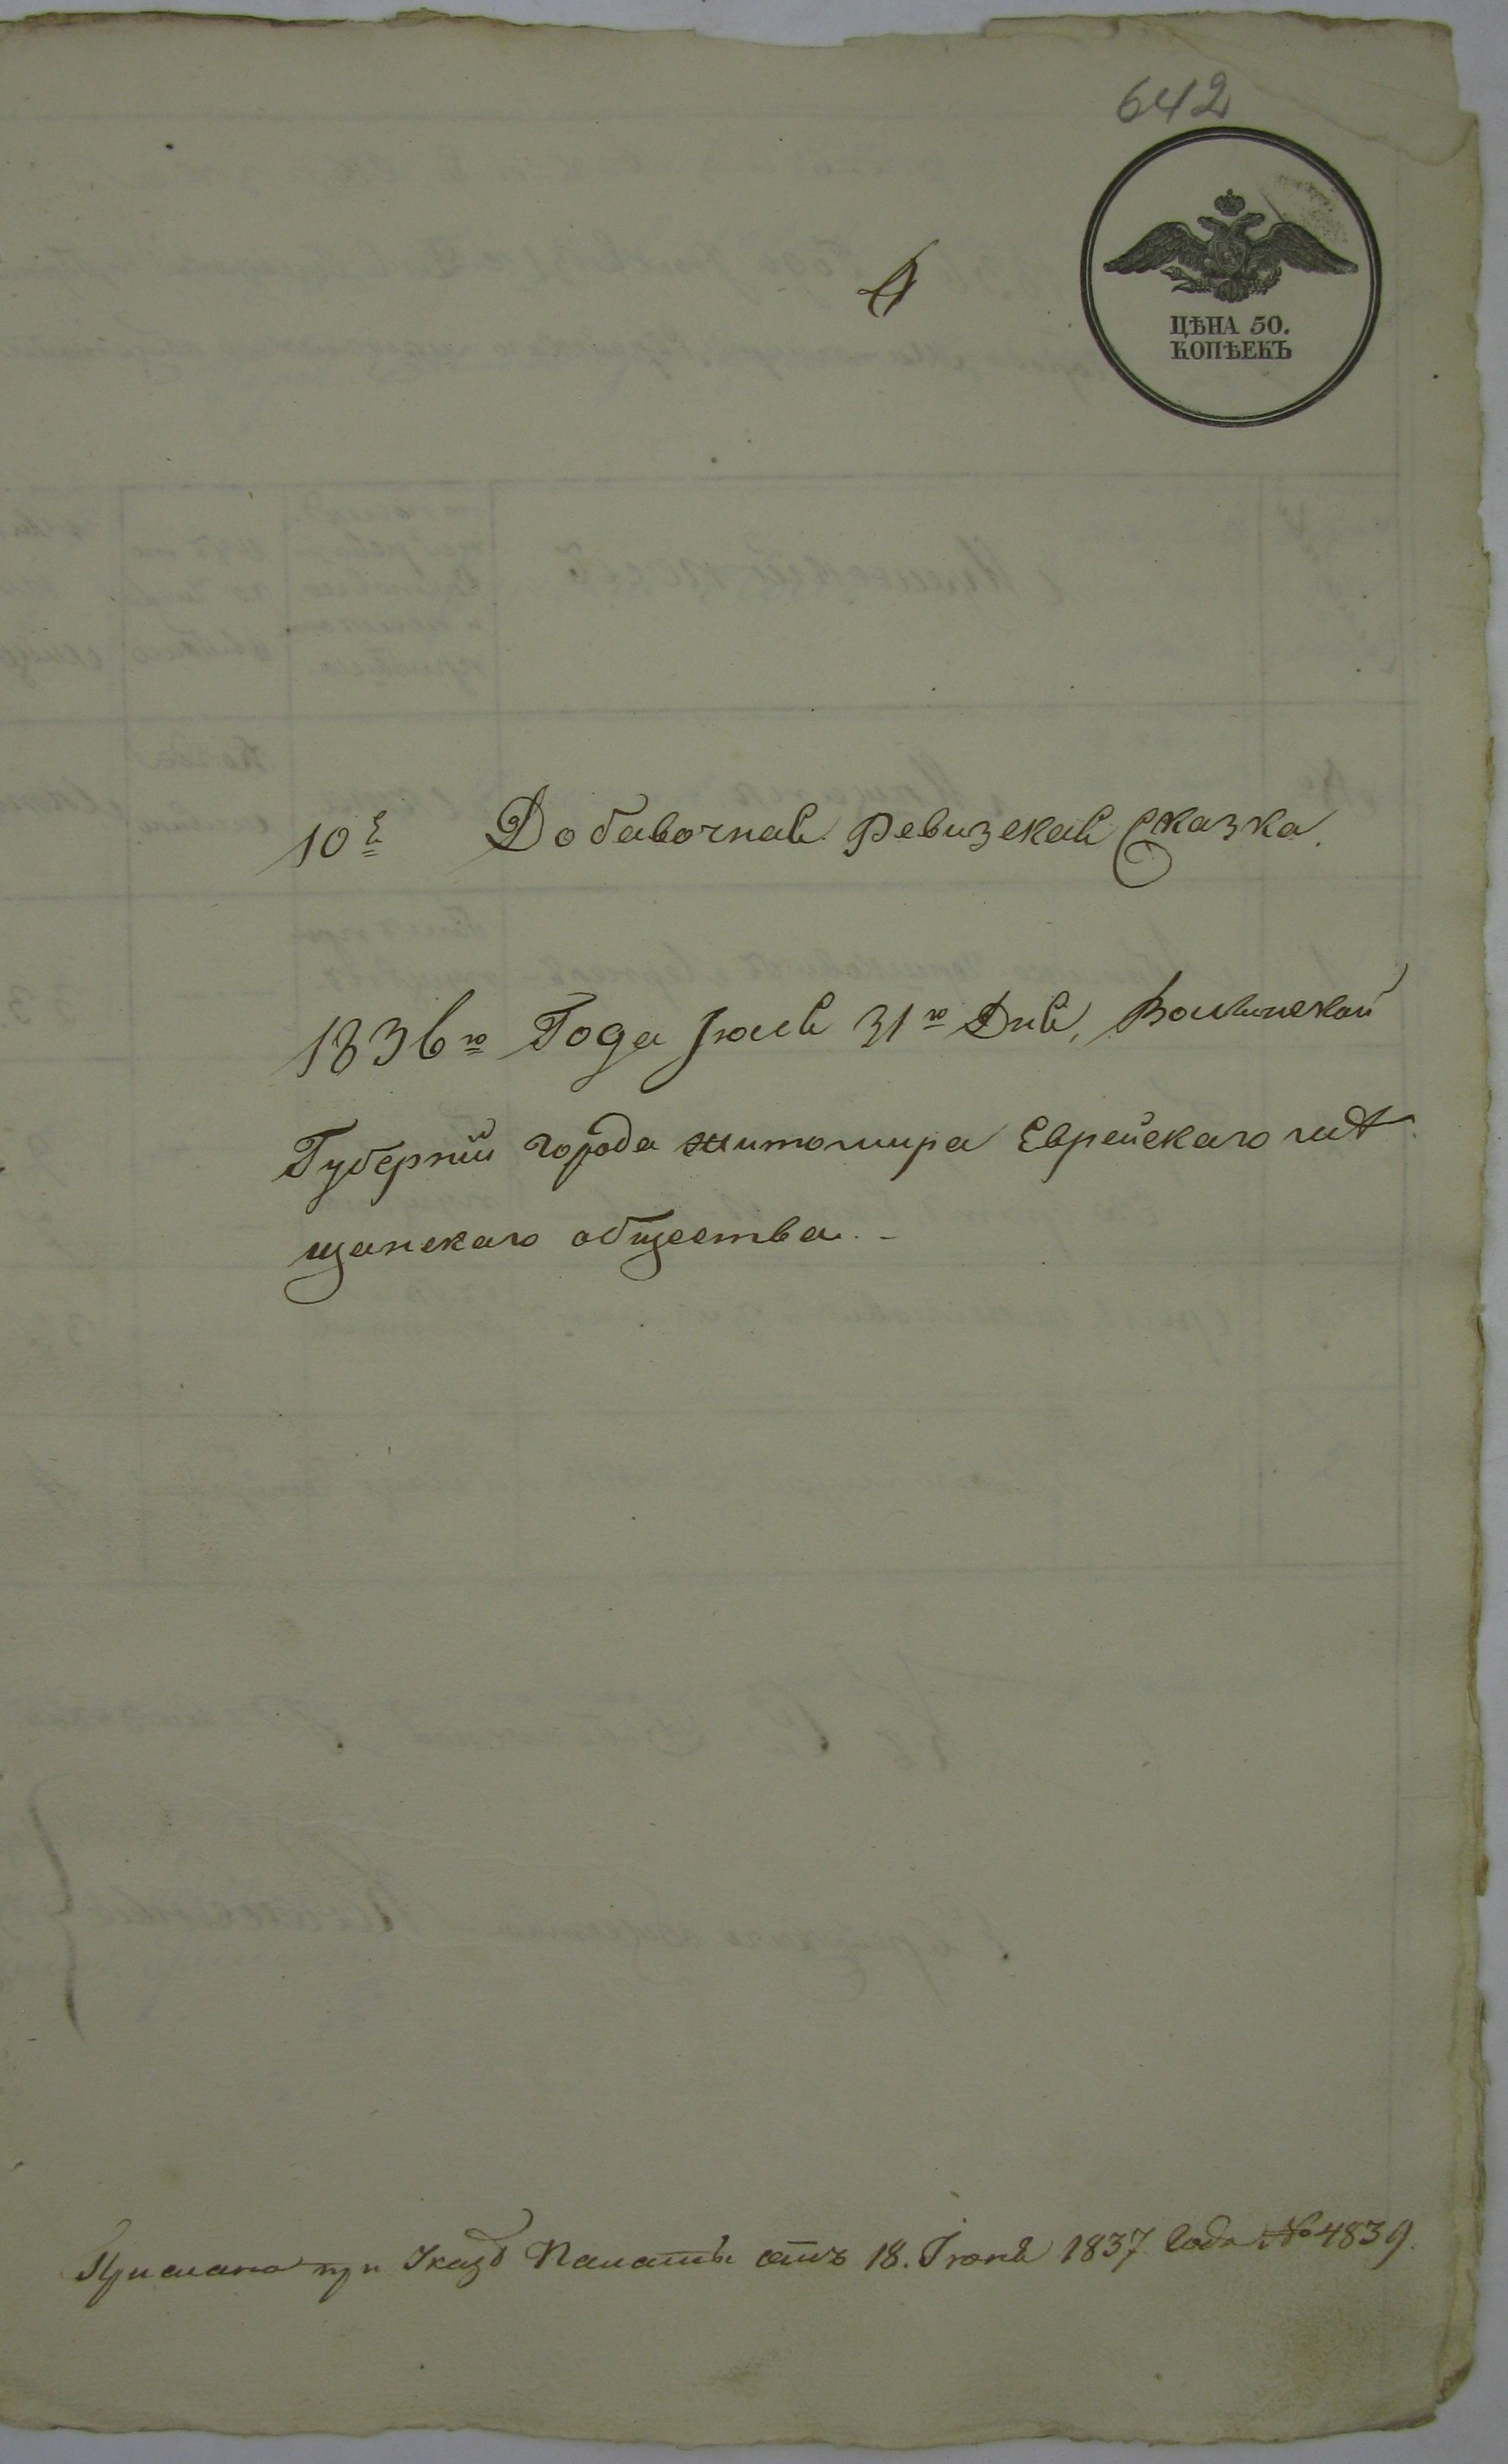 642
ЦѢНА 50.
КОПѢЕКЪ
10я Добавочная Ревизская Сказка.
1836го Года Июля 31го Дня, Волынской
Губерніи города Житомира Еврейскаго мѣ
щанскаго общества. -
Прислана при Указѣ Палаты отъ 18. Іюня 1837 Года № 4839.